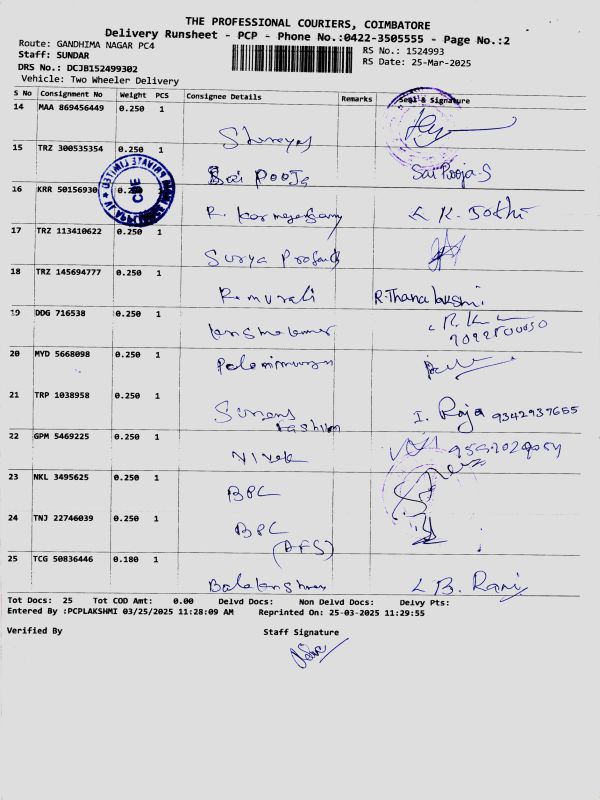 THE PROFESSIONAL COURIERS, COIMBATORE
Delivery Runsheet - PCP - Phone No.:0422-3505555 - Page No.:2
Route: GANDHIMA NAGAR PC4
RS No.: 1524993
Staff: SUNDAR
RS Date: 25-Mar-2025
DRS No.: DCJB152499302
Vehicle: Two Wheeler Delivery
S No Consignment No Weight PCS Consignee Details Remarks Seal & Signature
14 MAA 869456449 0.250 1
Shreyas
15 TRZ 300535354 0.250 1
Sai Pooja Sai Pooja-S
16 KRR 50156930 0.250 1
R. K. Jothi
17 TRZ 113410622 0.250 1
Surya Prasad
18 TRZ 145694777 0.250 1
R. murali R. Thanalakshmi
19 DDG 716538 0.250 1
20 MYD 5668098 0.250 1
Palanimurugan
21 TRP 1038958 0.250 1
I. Raja 9342937655
Fashion
22 GPM 5469225 0.250 1
Vivek
23 NKL 3495625 0.250 1
BPC
24 TNJ 22746039 0.250 1
BPC
(AFS)
25 TCG 50836446 0.180 1
B. Rani
Tot Docs: 25 Tot COD Amt: 0.00 Delvd Docs: Non Delvd Docs: Deivy Pts:
Entered By :PCPLAKSHMI 03/25/2025 11:28:09 AM Reprinted On: 25-03-2025 11:29:55
Verified By Staff Signature